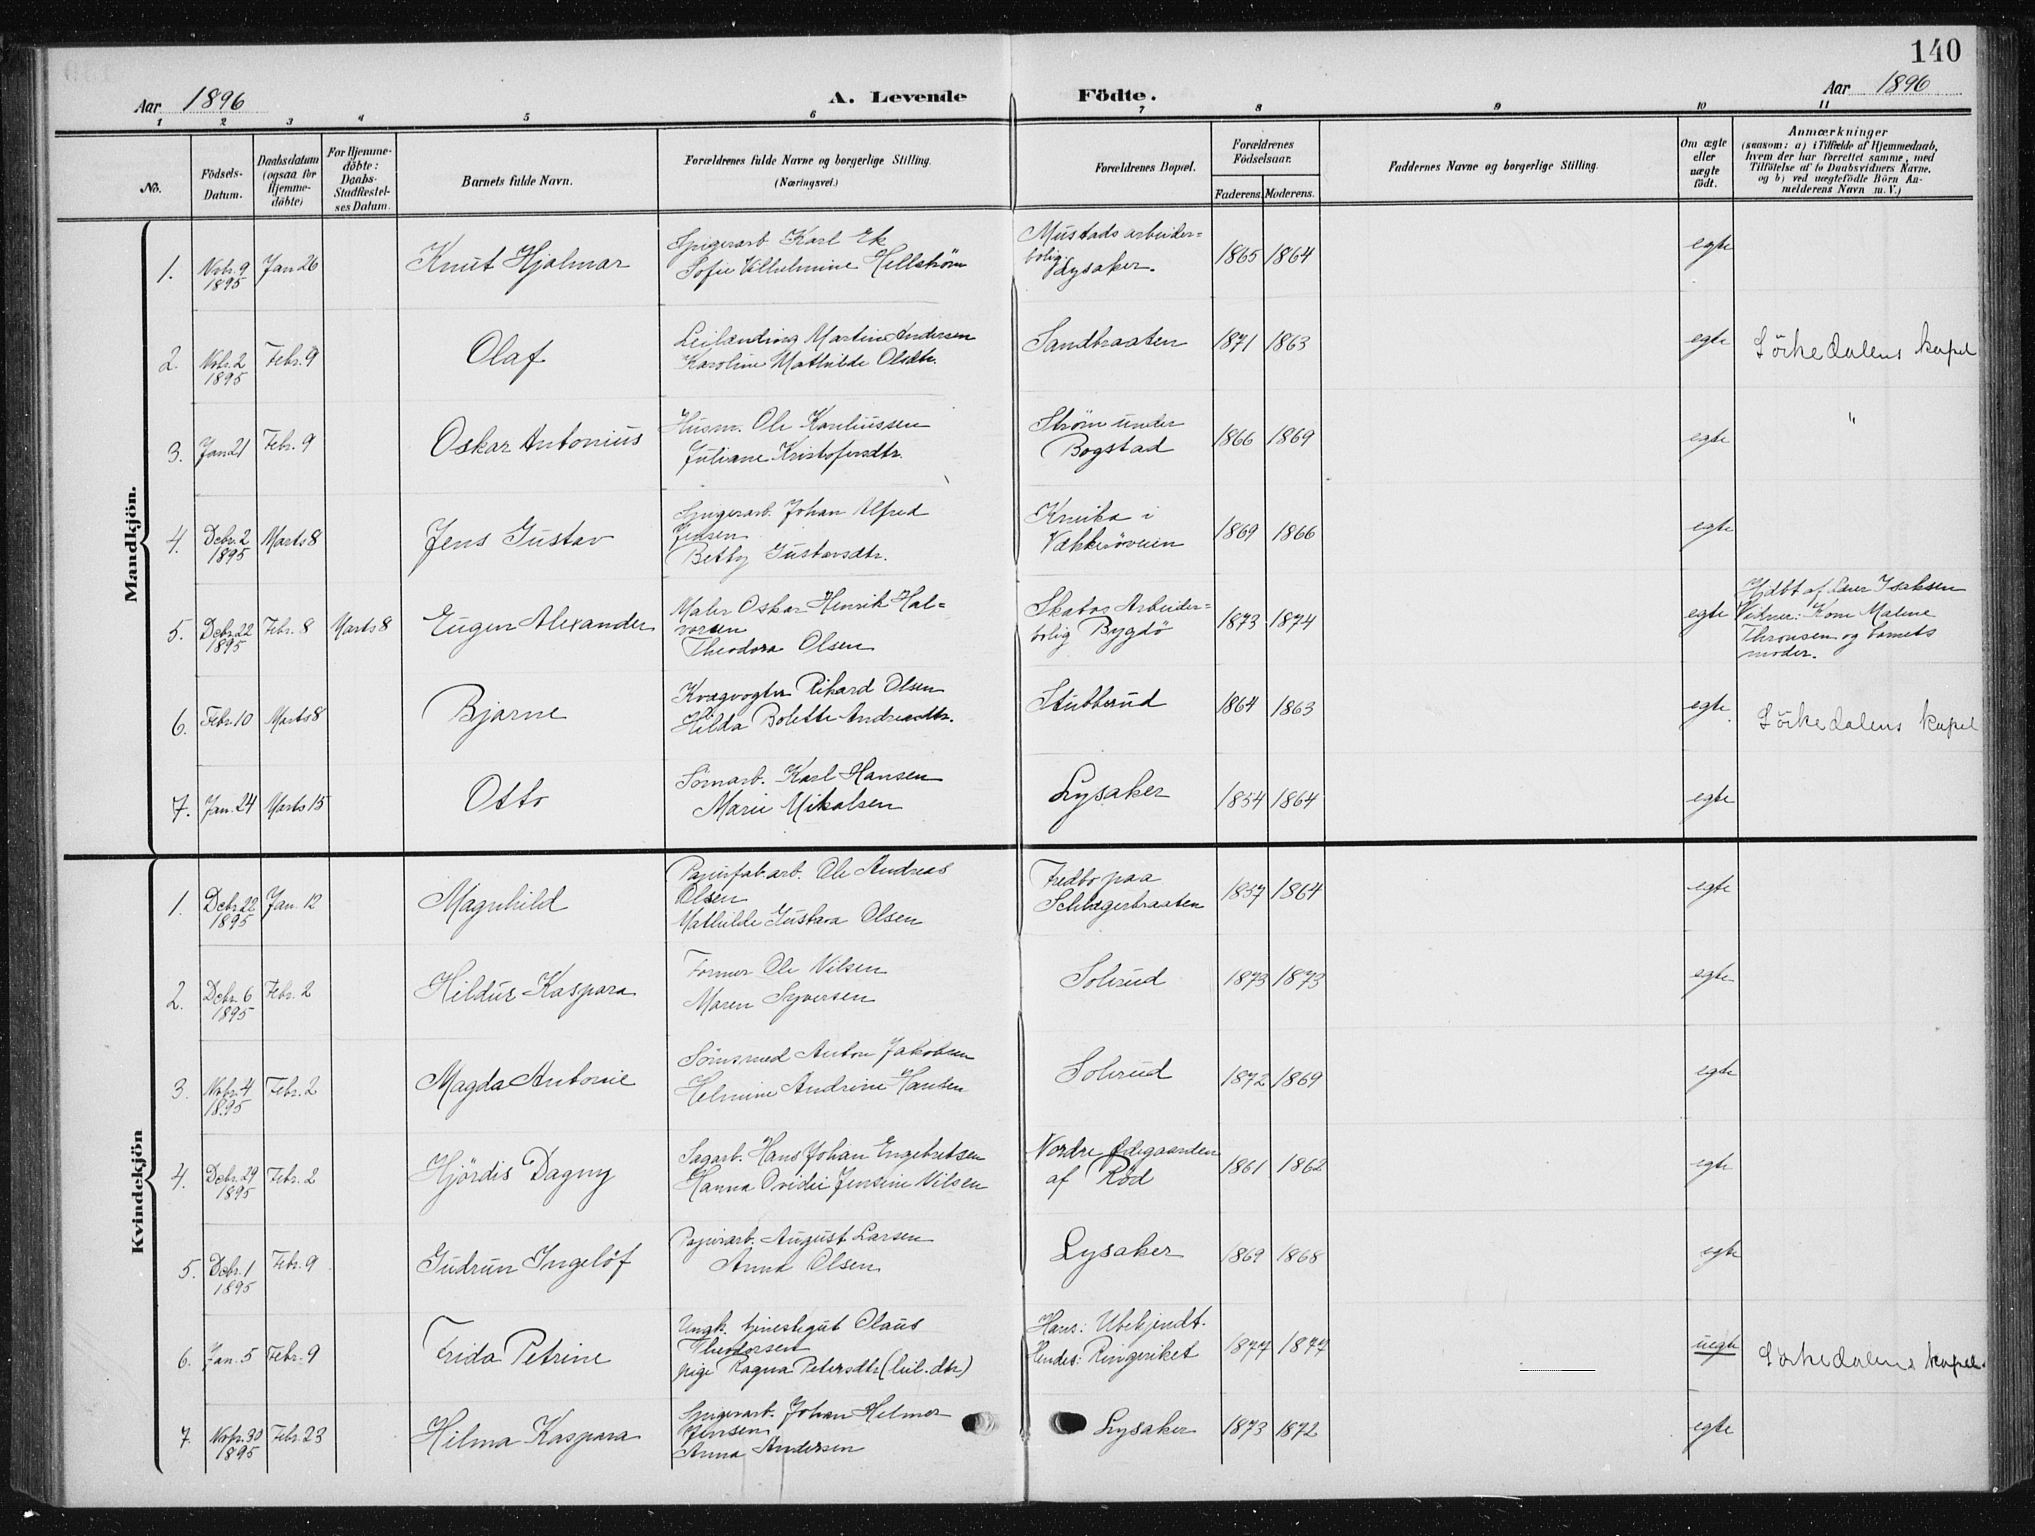 140
Aar 1896
A. Levende Födte.
Aar 1896
1 2 3 4 5 6 7 8 9 10 11
No.
Födsels-Datum.
Daabsdatum (ogsaa for Hjemme-döbte)
For Hjemme-döbte: Daabs-Stadfestel-ses Datum.
Barnets fulde Navn.
Forældrenes fulde Navne og borgerlige Stilling. (Næringsvei.)
Forældrenes Bopæl.
Forældrenes Födselsaar.
Faderens. Moderens.
Faddernes Navne og borgerlige Stilling.
Om ægte eller uægte födt.
Anmærkninger
(saasom: a) i Tilfælde af Hjemmedaab, hvem der har forrettet samme, med Tilföielse af to Daabsvidners Navne. og b) ved uægtefödte Börn Anmelderens Navn m. V.)
Mandkjön.
1. Nvbr. 9 1895 Jan 26 Knut Hjalmar Spigerarb. Karl Ek Sofie Vilhelmine Hellström Mustads arbeider=bolig Lysaker. 1865 1864 egte
2. Nvbr. 2 1895 Febr. 9 Olaf Leilænding Martin Andersen Karoline Mathilde Olsdtr. Sandbraaten 1871 1863 egte Sörkedalens kapel
3. Jan 21 Febr. 9 Oskar Antonius Husm. Ole Karelinssen Juliane Kristofersdtr. Strøm under Bogstad 1866 1869 egte "
4. Decbr. 2 1895 Marts 8 Jens Gustav Spigerarb. Johan Alfred Jensen Betty Gustavsdtr. Kneika i Vækkerøveien 1869 1866 egte
5. Decbr. 22 1895 Febr. 8 Marts 8 Eugen Alexander Maler Oskar Henrik Hal=vorsen Theodora Olsen Skabos Arbeider=bolig Bygdö 1873 1874 egte Hjdbt af Isaksen Vidner: Kone Malene Thronsen og barnets moder.
6. Febr. 10 Marts 8 Bjarne Kvægvogter Rikard Olsen Hilda Bolette Andreasdtr. Stubberud 1864 1863 egte Sörkedalens kapel
7. Jan. 24 Marts 15 Otto Sömarb. Karl Hansen Marie Mikalsen Lysaker 1854 1864 egte
Kvindekjön
1. Decbr. 22 1895 Jan. 12 Magnhild Papirfab.arb. Ole Andreas Olsen Mathilde Gustava Olsen Fredbo paa Schlægerbraaten 1857 1864 egte
2. Dcbr. 6 1895 Febr. 2 Hildur Kaspara Former Ole Nilsen Maren Syversen Solrud 1873 1873 egte
3. Nvbr. 4 1895 Febr. 2 Magda Antonie Sömsmed Anton Jakobsen Helmine Andrine Hansen Solrud 1872 1869 egte
4. Decbr. 29 1895 Febr. 2 Hjördis Dagny Sagarb. Hans Johan Engebretsen Hanna Ovidie Jensine Nilsen Nordre Ødegaarden af Röd 1861 1862 egte
5. Decbr. 1 1895 Febr. 9 Gudrun Ingelöf Papirarb. August Larsen Anna Olsen Lysaker 1869 1868 egte
6. Jan. 5 Febr. 9 Frida Petrine Ungk. tjenestegut Olaus Theodorsen Pige Ragna Petersdtr. (leil.dtr.) Hans: Ubekjendt. Hendes: Ringeriket 1877 1877 uegte Sörkedalens kapel.
7. Novbr. 30 1895 Febr. 23 Hilma Kaspara Spigerarb. Johan Helmer Jensen Anna Andersen Lysaker 1873 1872 egte